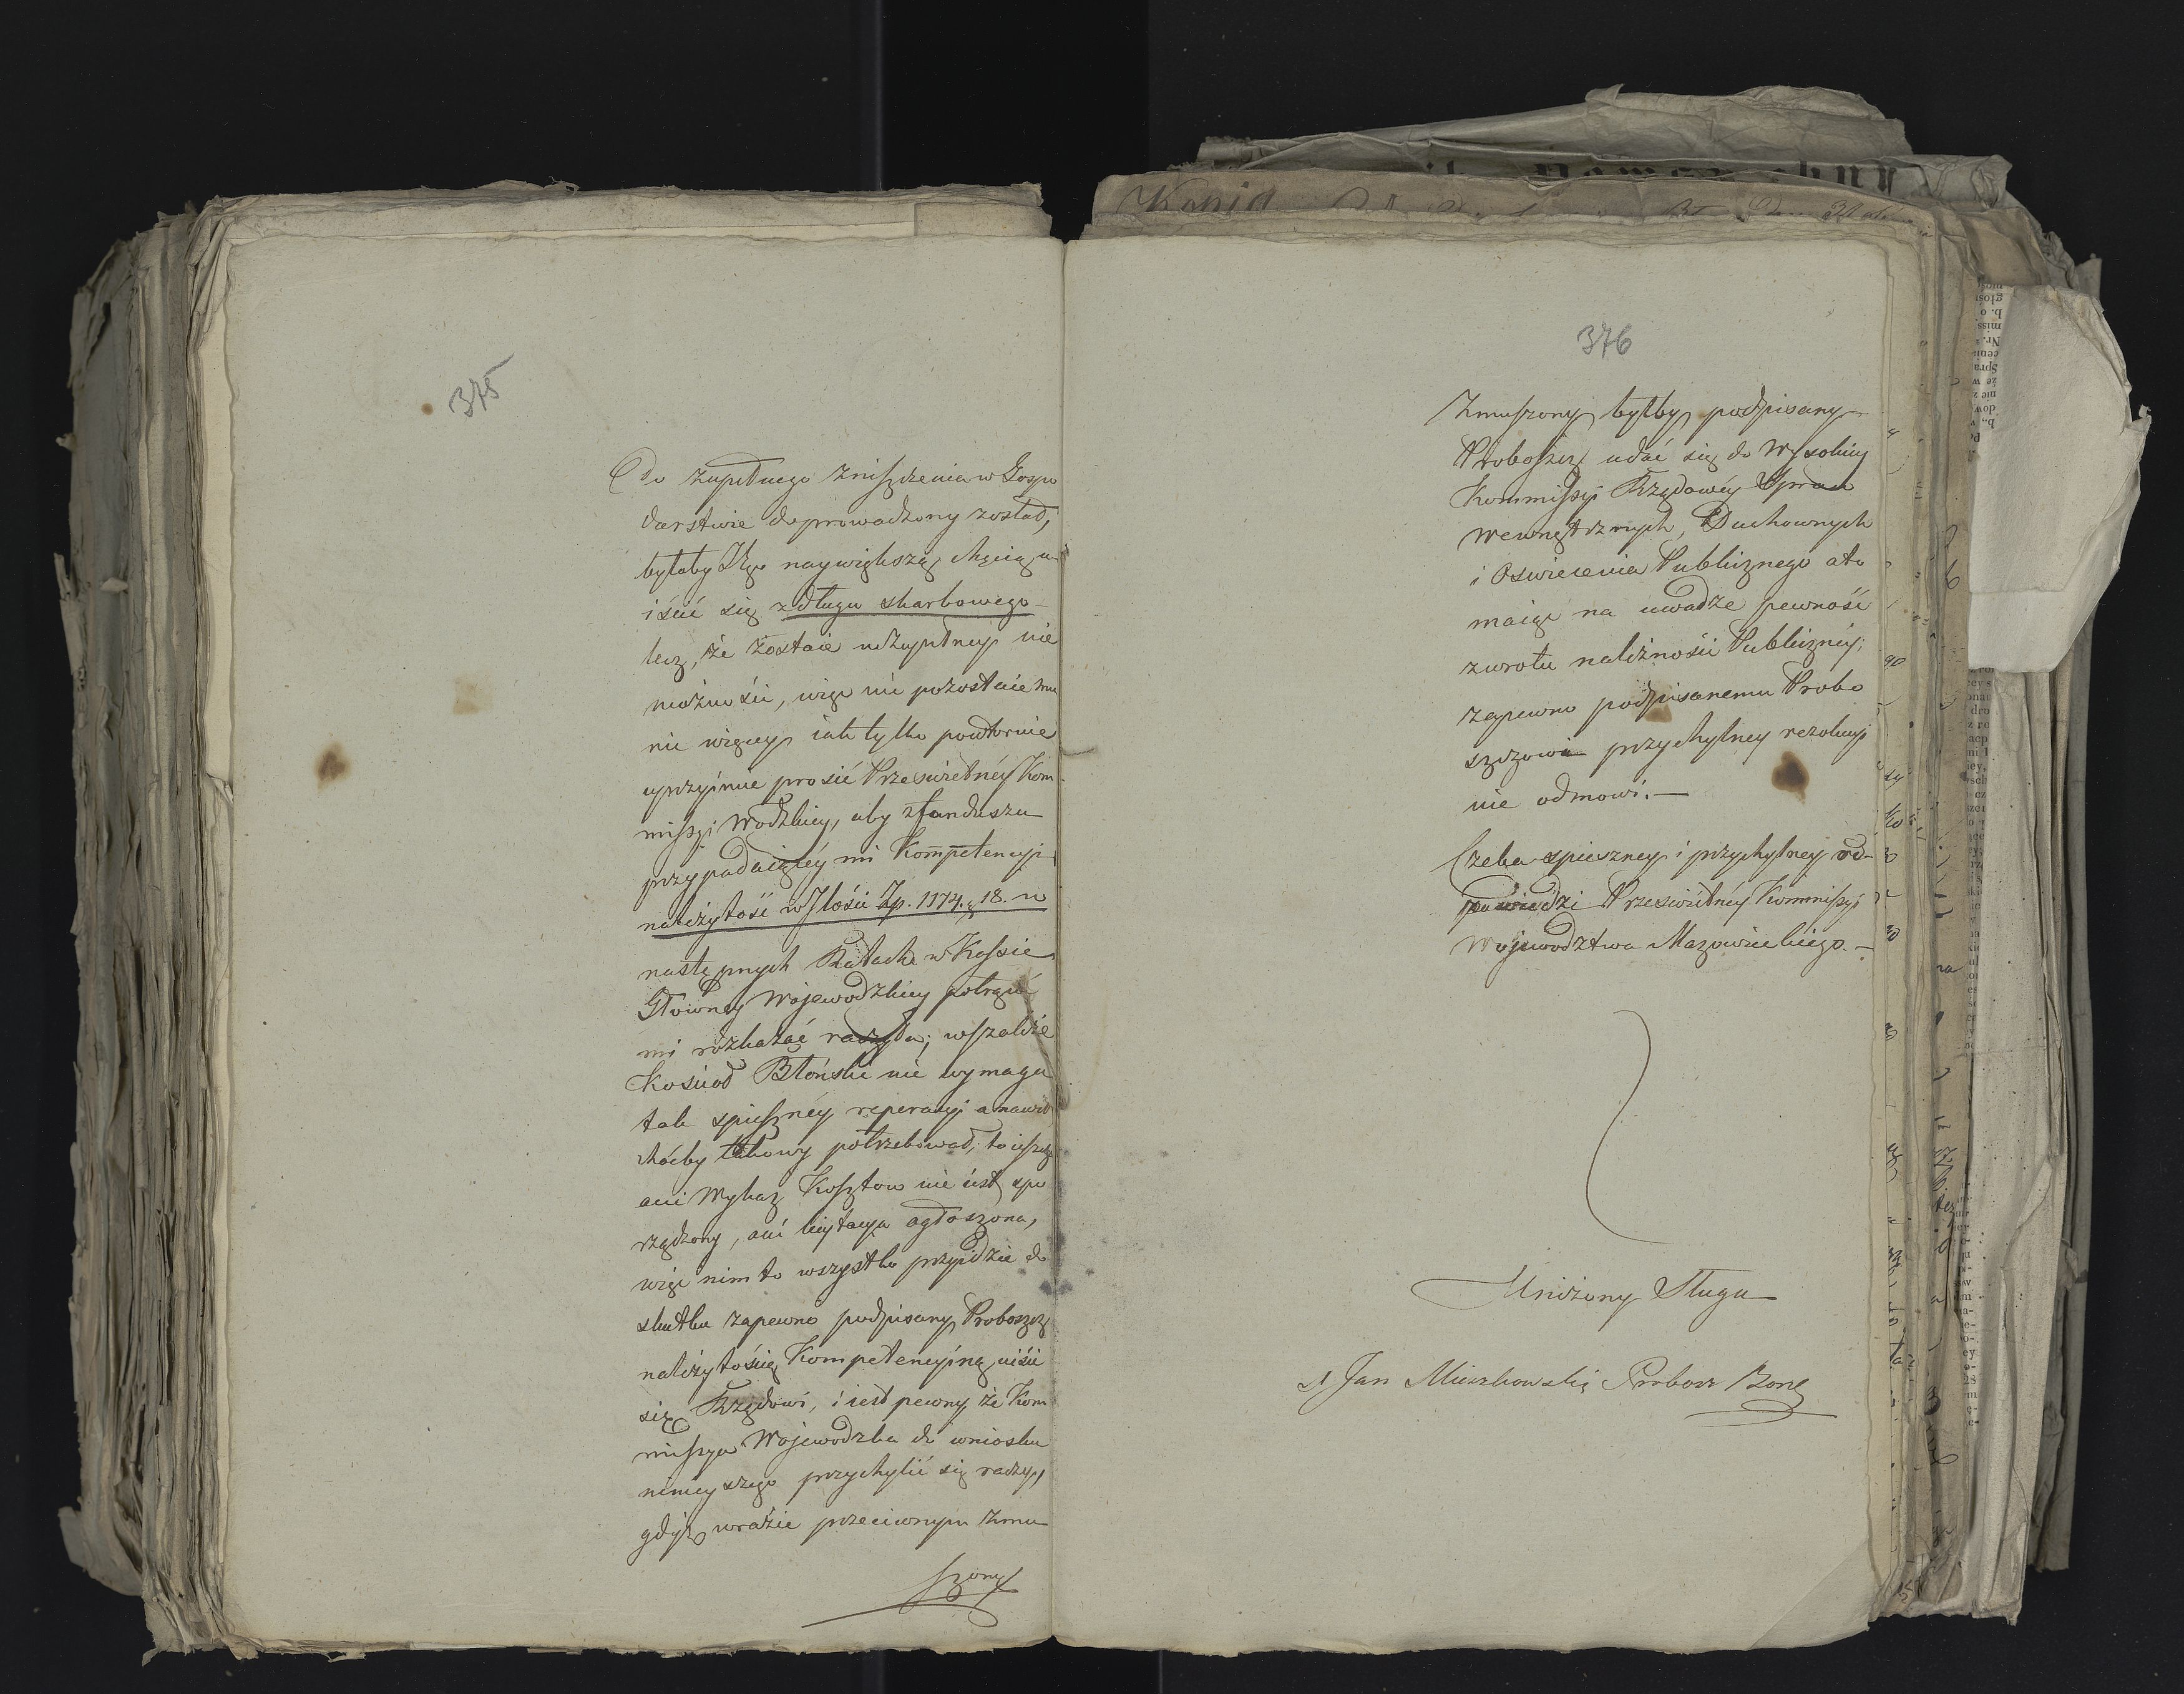 375
do zupełnego zniszczenia w Gospo
darstwie doprowadzony został,
byłoby Jego naywiększą chęcią u-
iścić się z długu skarbowego
lecz, że zostaie w zupełney nie
możności, więc nie pozostaie mu
nic więcey iak tylko powtornie
uprzyimie prosić Prześwietnéy Kom-
missyi Wodzkiey, aby z funduszu
przypadaiącéy mi Kompetencyi
należytość w Ilości Zp. 1174. g 18. w
następnych Ratach w Kassie
Głowney Wojewodzkiey potrącić
mi rozkazać raczyła; wszakże
Kościoł Błoński nie wymaga
tak spiesznéy reperacyi a nawet
choćby takowy potrzebował, to ieszcze
ani Wykaz Kosztow nie iest spo
rządzony, ani licytacya ogłoszona,
więc nim to wszystko przyidzie do
skutku zapewno podpisany Proboszcz
należytością Kompetencyiną uiści
się Rządowi, i iest pewny że Kom
missya Wojewodzka do wniosku
ninieyszego przychylić się raczy,
gdyż w razie przeciwnym zmu
szony
376
Zmuszony byłby podpisany
Proboszcz udać się do Wysokiey
Kommissyi Rządowéy Spraw
Wewnętrznych, Duchownych
i Oświecenia Publicznego a ta
maiąc na uwadze pewność
zwrotu należności Publicznéy,
zapewno podpisanemu Probo
szczowi przychylney rezolucyi
nie odmowi.—
Czeka spieszney i przychylney od-
powiedzi Prześwietnéy Kommissyi
Wojewodztwa Mazowieckiego.—
Uniżony Sługa
X Jan Mieszkowski Probosz Bonę
Kopia